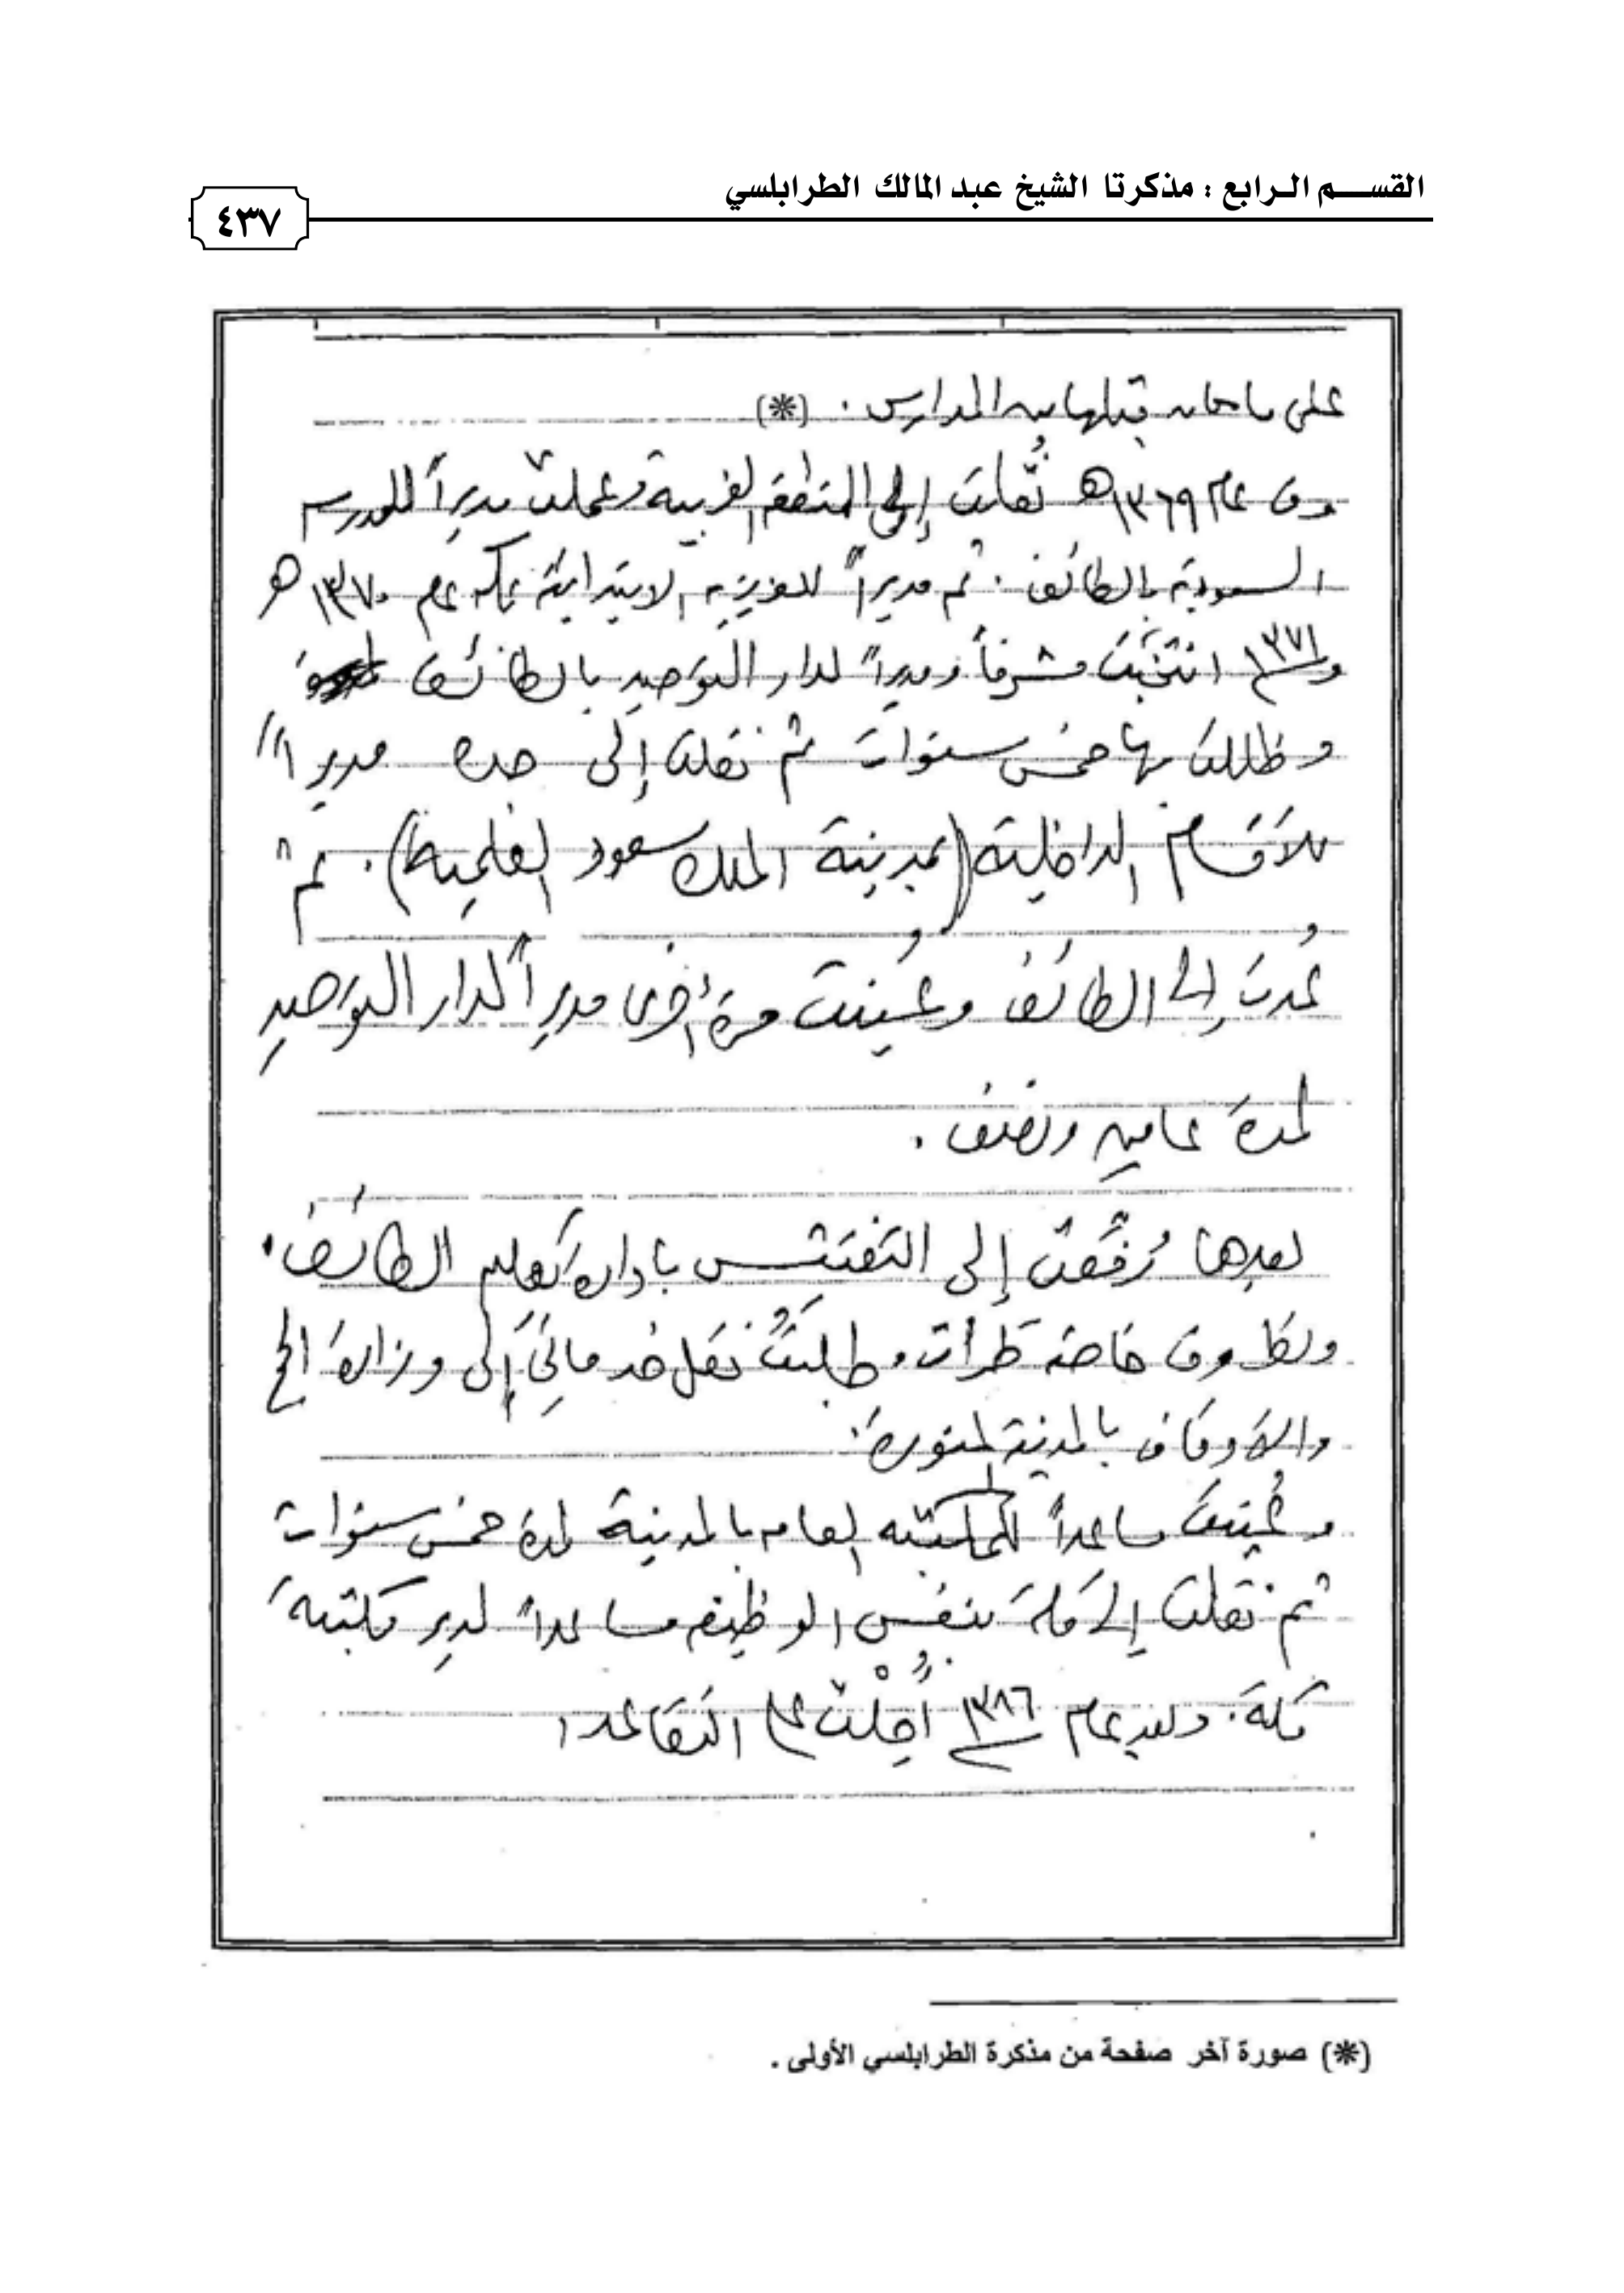 القســـم الـرابع : مذكرتا الشيخ عبد المالك الطرابلسي
٤٣٧
على ما كان قبلها من المدارس . (*)
وفى عام ١٣٦٩ه نُقلت إلى المنطقة الغربية وعملت مديراً للمدرسه
السعودية بالطائف . ثم مديراً للعزيزيه الابتدائية بمكه عام ١٣٧٠ه
و١٣٧١ انتخبت مشرفاً ومديراً لدار التوحيد بالطائف
وظللت بها خمس سنوات ثم نقلت إلى جده مديراً
للأقسام الداخلية (بمدينة الملك سعود العلمية) . ثم
عُدت إلى الطائف وعُينت مرة أخرى مديراً لدار التوحيد
لمدة عامين ونصف .
بعدها رُفِّعت إلى التفتيش بإدارة تعليم الطائف .
ولظروف خاصة طرأت . طلبتُ نقل خدماتى إلى وزارة الحج
والأوقاف بالمدينة المنورة :
وعُينت مساعداً للمكتبه العامه بالمدينة لمدة خمس سنوات
ثم نقلت إلى مكة بنفس الوظيفه مساعداً لمدير مكتبة
مكة . وفى عام ١٣٨٦ أُحِلْت على التقاعد ا
(*) صورة آخر صفحة من مذكرة الطرابلسي الأولى .